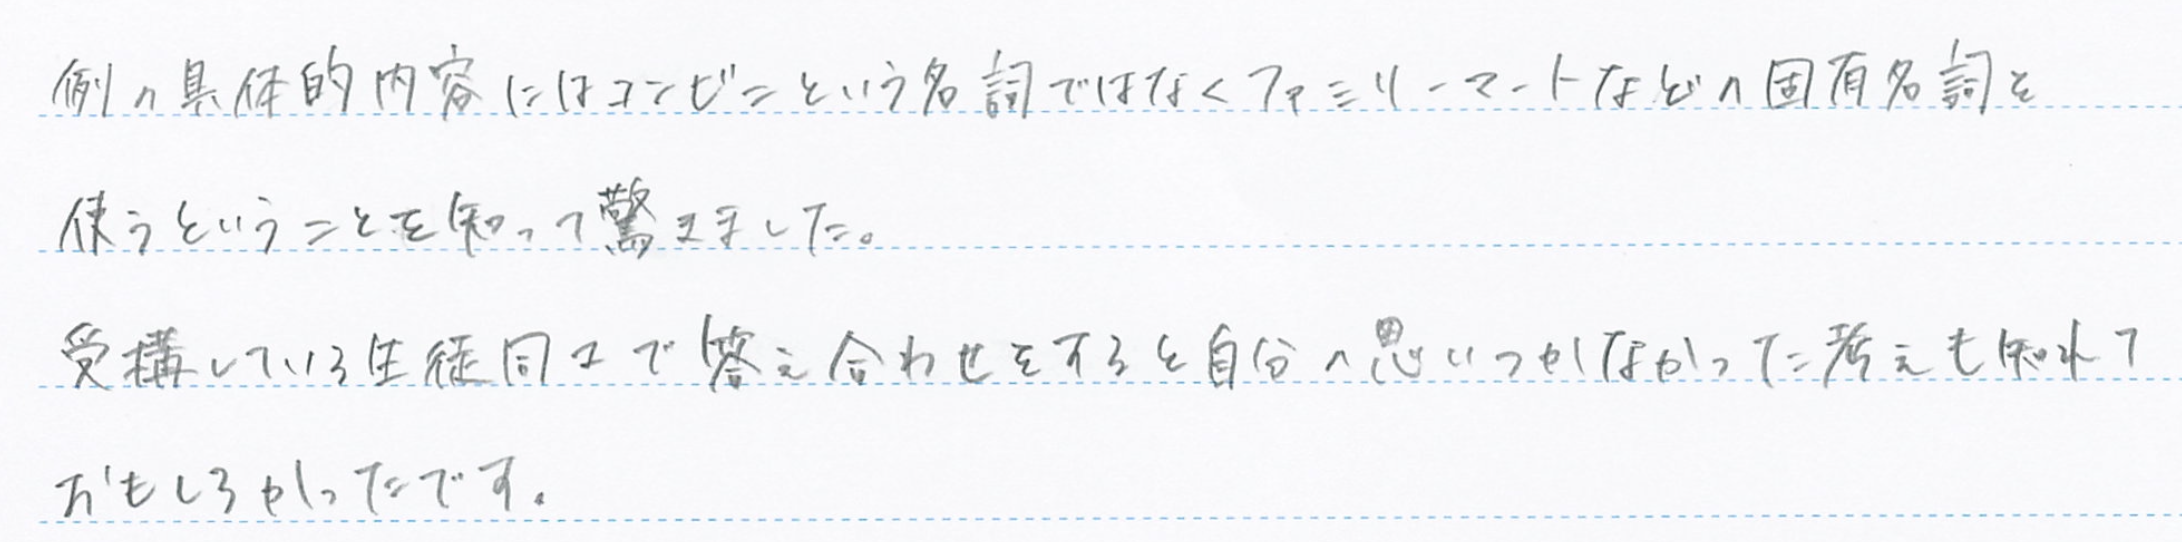 例の具体的内容にはコンビニという名詞ではなくファミリーマートなどの固有名詞を
使うということを知って驚きました。
受講している生徒同士で答え合わせをすると自分の思いつかなかった考えも知れて
おもしろかったです。